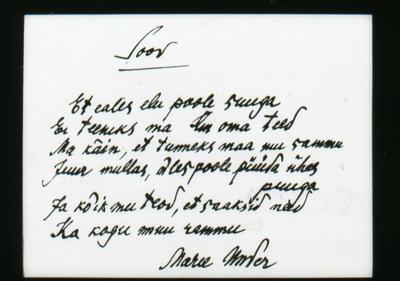 Soov
Et eales elu poole suuga
Ei teeniks ma üm oma teed
Ma käin, et tunneks maa mu sammu
Juur mullas, üles poole püüda ühes
puuga
Ja kõik mu teod, et saaksid need
Ka kogu muu rammu
Marie Under